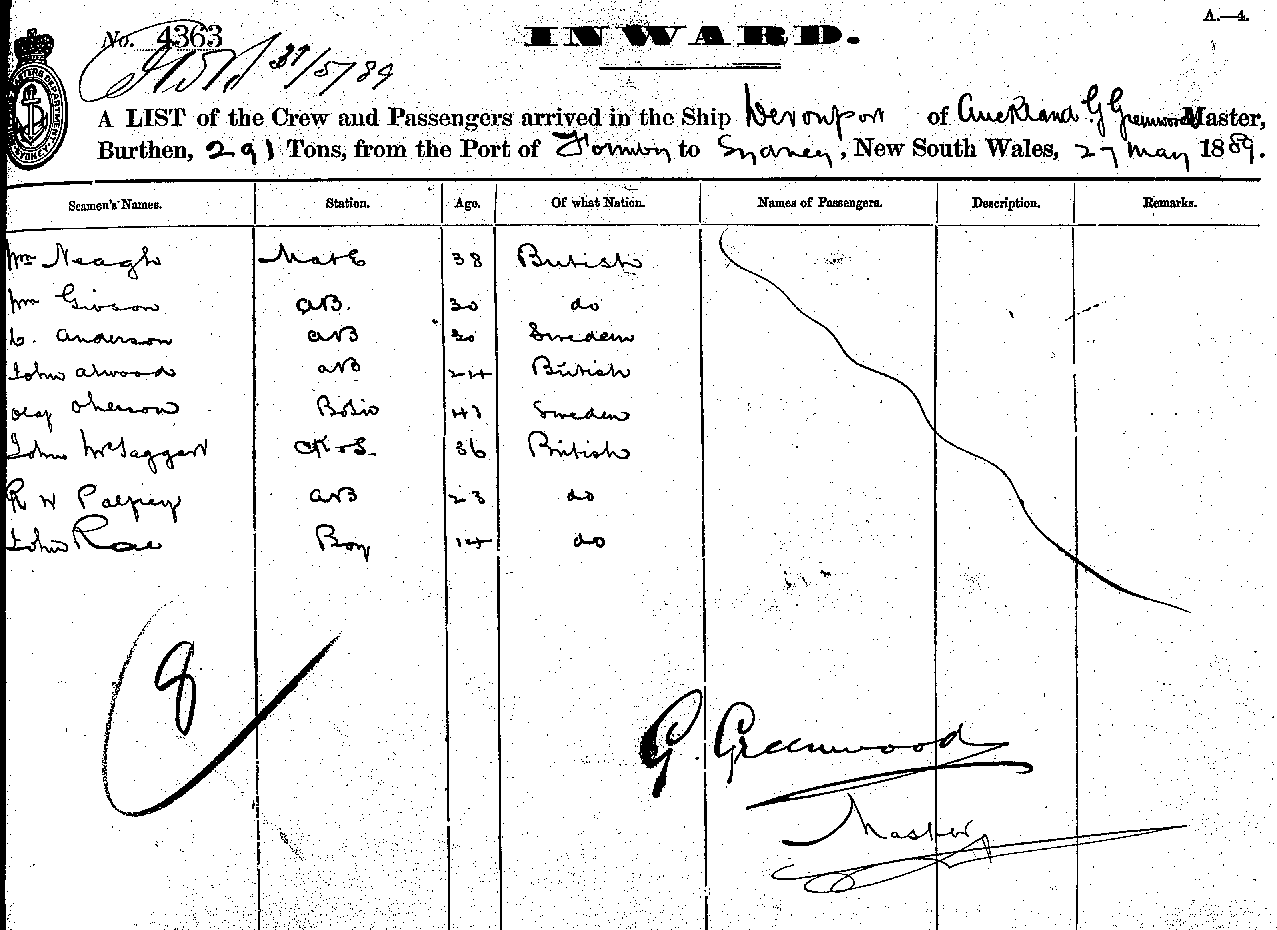 A.—4.
No. 4363
INWARD.
31/5/89
A LIST of the Crew and Passengers arrived in the Ship Devonport of Auckland G Greenwood Master,
Burthen, 291 Tons, from the Port of Formby to Sydney, New South Wales, 27 May 1889.
Seamen's Names. Station. Age. Of what Nation. Names of Passengers. Description. Remarks.
Wm Neagh Mate 38 British
Wm Gibson AB. 30 do
C. Anderson AB 30 Sweden
John Atwood AB 24 British
Olaf Oherson Bosn 43 Sweden
John McTaggart CK & S. 36 British
R W AB 23 do
John Rae Boy 14 do
8
G. Greenwood
Master